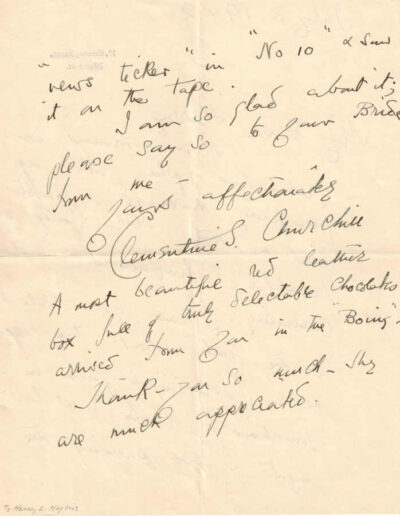 "news ticker" in "No 10" & saw
it on the tape.
I am so glad about it;
please say so to your Bride
from me -
Yours affectionately
Clementine S. Churchill
A most beautiful red leather
box full of truly delectable chocolates
arrived from you in the "Boing" -
Thank you so much - they
are much appreciated.
To Harry L. Hopkins